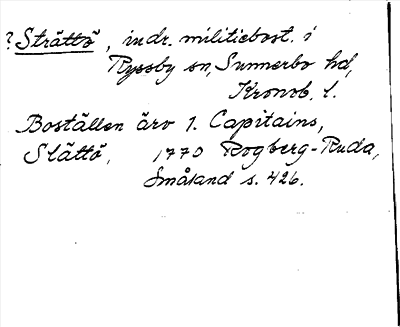 ? Strättö, indr. militiebost. i
Ryssby sn, Sunnerbo hd,
Kronob. l.
Boställen äro 1. Capitains,
Slättö, 1770 Rogberg-Ruda,
Småland s. 426.